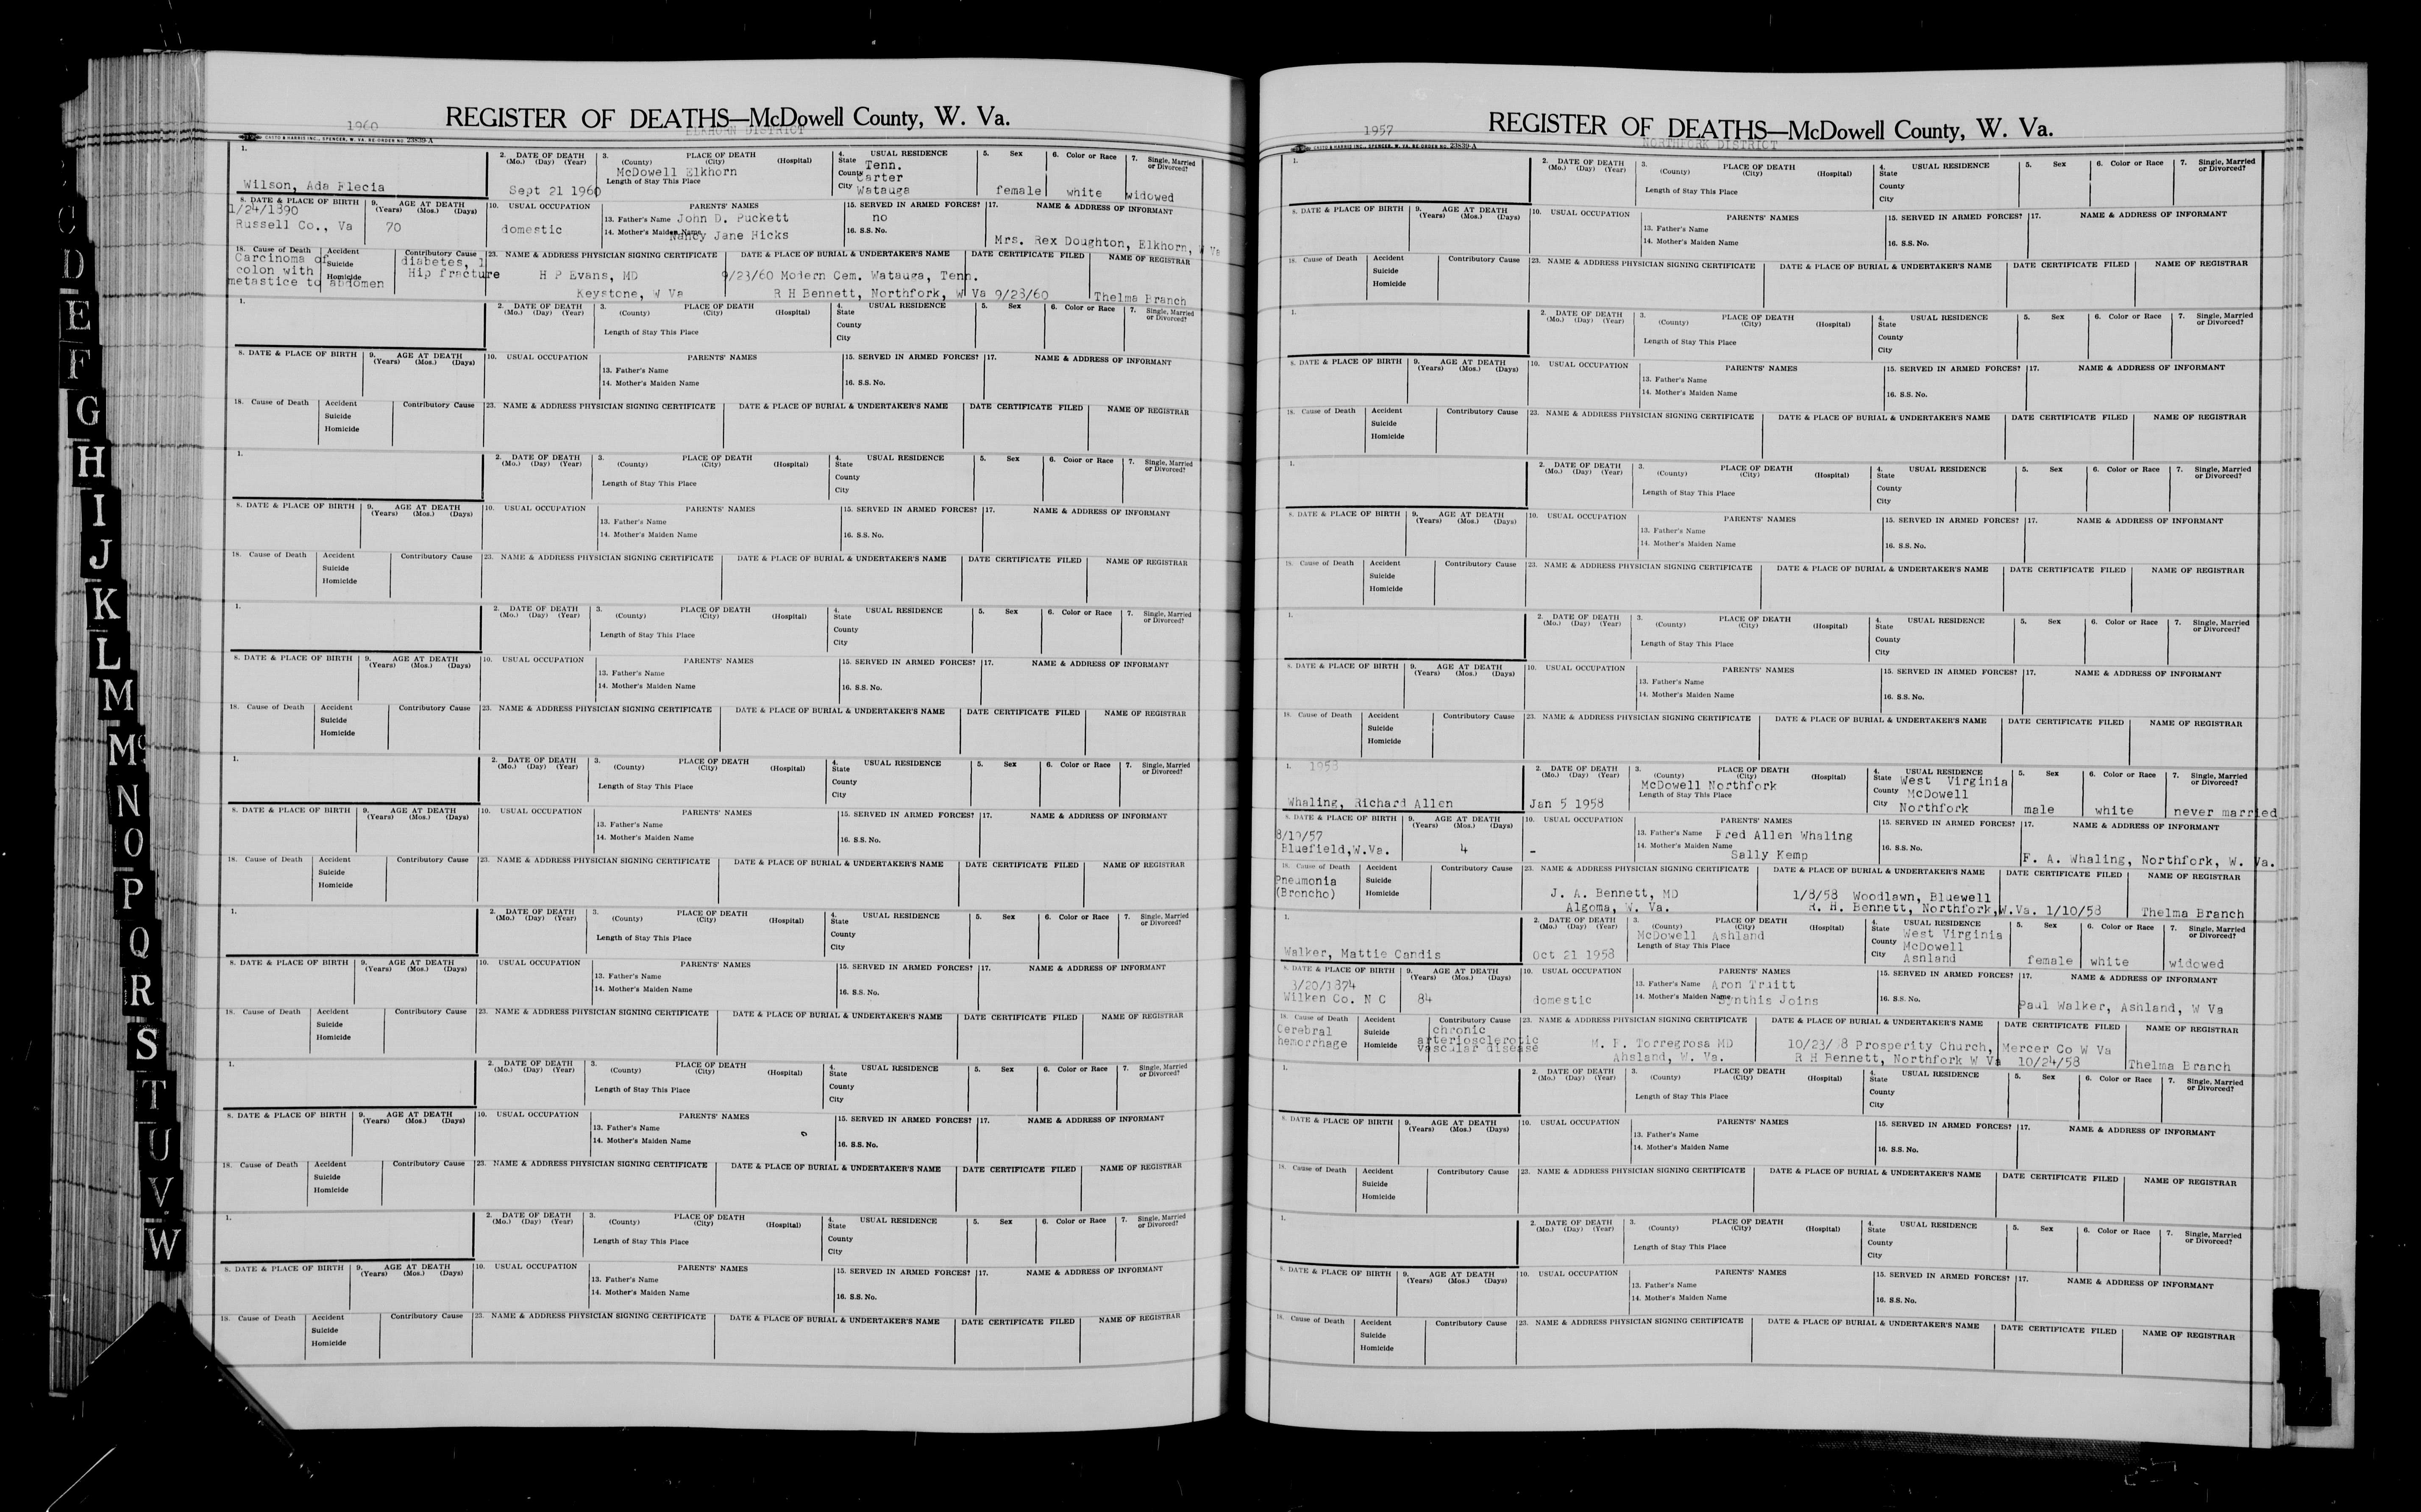 C
D
E
F
G
H
I
J
K
L
M
Mc
N
O
P
Q
R
S
T
U
V
W
1960
REGISTER OF DEATHS—McDowell County, W. Va.
ELKHORN DISTRICT
CASTO & HARRIS INC., SPENCER, W. VA. RE-ORDER NO. 23839-A
1. Wilson, Ada Flecia
2. DATE OF DEATH (Mo.) (Day) (Year) Sept 21 1960
3. PLACE OF DEATH (County) (City) (Hospital) McDowell Elkhorn
Length of Stay This Place
4. USUAL RESIDENCE State Tenn.
County Carter
City Watauga
5. Sex female
6. Color or Race white
7. Single, Married or Divorced? widowed
8. DATE & PLACE OF BIRTH 1/24/1890
Russell Co., Va
9. AGE AT DEATH (Years) (Mos.) (Days) 70
10. USUAL OCCUPATION domestic
PARENTS' NAMES
13. Father's Name John D. Puckett
14. Mother's Maiden Name Nancy Jane Hicks
15. SERVED IN ARMED FORCES? no
16. S.S. No.
17. NAME & ADDRESS OF INFORMANT
Mrs. Rex Doughton, Elkhorn, W Va
18. Cause of Death Carcinoma of
colon with
metastice to abdomen
Accident
Suicide
Homicide
Contributory Cause diabetes,
Hip fracture
23. NAME & ADDRESS PHYSICIAN SIGNING CERTIFICATE
H P Evans, MD
Keystone, W Va
DATE & PLACE OF BURIAL & UNDERTAKER'S NAME
9/23/60 Modern Cem. Watauga, Tenn.
R H Bennett, Northfork, W Va
DATE CERTIFICATE FILED 9/23/60
NAME OF REGISTRAR Thelma Branch
1957
REGISTER OF DEATHS—McDowell County, W. Va.
NORTHFORK DISTRICT
CASTO & HARRIS INC., SPENCER, W. VA. RE-ORDER NO. 23839-A
1. 1958
Whaling, Richard Allen
2. DATE OF DEATH (Mo.) (Day) (Year) Jan 5 1958
3. PLACE OF DEATH (County) (City) (Hospital) McDowell Northfork
Length of Stay This Place
4. USUAL RESIDENCE State West Virginia
County McDowell
City Northfork
5. Sex male
6. Color or Race white
7. Single, Married or Divorced? never married
8. DATE & PLACE OF BIRTH
Bluefield, W.Va.
9. AGE AT DEATH (Years) (Mos.) (Days) 4
10. USUAL OCCUPATION -
PARENTS' NAMES
13. Father's Name Fred Allen Whaling
14. Mother's Maiden Name Sally Kemp
15. SERVED IN ARMED FORCES?
16. S.S. No.
17. NAME & ADDRESS OF INFORMANT
F. A. Whaling, Northfork, W. Va.
18. Cause of Death Pneumonia
(Broncho)
Accident
Suicide
Homicide
Contributory Cause
23. NAME & ADDRESS PHYSICIAN SIGNING CERTIFICATE
J. A. Bennett, MD
Algoma, W. Va.
DATE & PLACE OF BURIAL & UNDERTAKER'S NAME
1/8/58 Woodlawn, Bluewell
R. H. Bennett, Northfork, W.Va.
DATE CERTIFICATE FILED 1/10/58
NAME OF REGISTRAR Thelma Branch
1. Walker, Mattie Candis
2. DATE OF DEATH (Mo.) (Day) (Year) Oct 21 1958
3. PLACE OF DEATH (County) (City) (Hospital) McDowell Ashland
Length of Stay This Place
4. USUAL RESIDENCE State West Virginia
County McDowell
City Ashland
5. Sex female
6. Color or Race white
7. Single, Married or Divorced? widowed
8. DATE & PLACE OF BIRTH 3/20/1874
Wilken Co. N C
9. AGE AT DEATH (Years) (Mos.) (Days) 84
10. USUAL OCCUPATION domestic
PARENTS' NAMES
13. Father's Name Aron Truitt
14. Mother's Maiden Name Synthis Joins
15. SERVED IN ARMED FORCES?
16. S.S. No.
17. NAME & ADDRESS OF INFORMANT
Paul Walker, Ashland, W Va
18. Cause of Death Cerebral
hemorrhage
Accident
Suicide
Homicide
Contributory Cause chronic
arteriosclerotic
vascular disease
23. NAME & ADDRESS PHYSICIAN SIGNING CERTIFICATE
Torregrosa MD
Ahsland, W. Va.
DATE & PLACE OF BURIAL & UNDERTAKER'S NAME
10/23/58 Prosperity Church, Mercer Co W Va
R H Bennett, Northfork W Va
DATE CERTIFICATE FILED 10/24/58
NAME OF REGISTRAR Thelma Branch